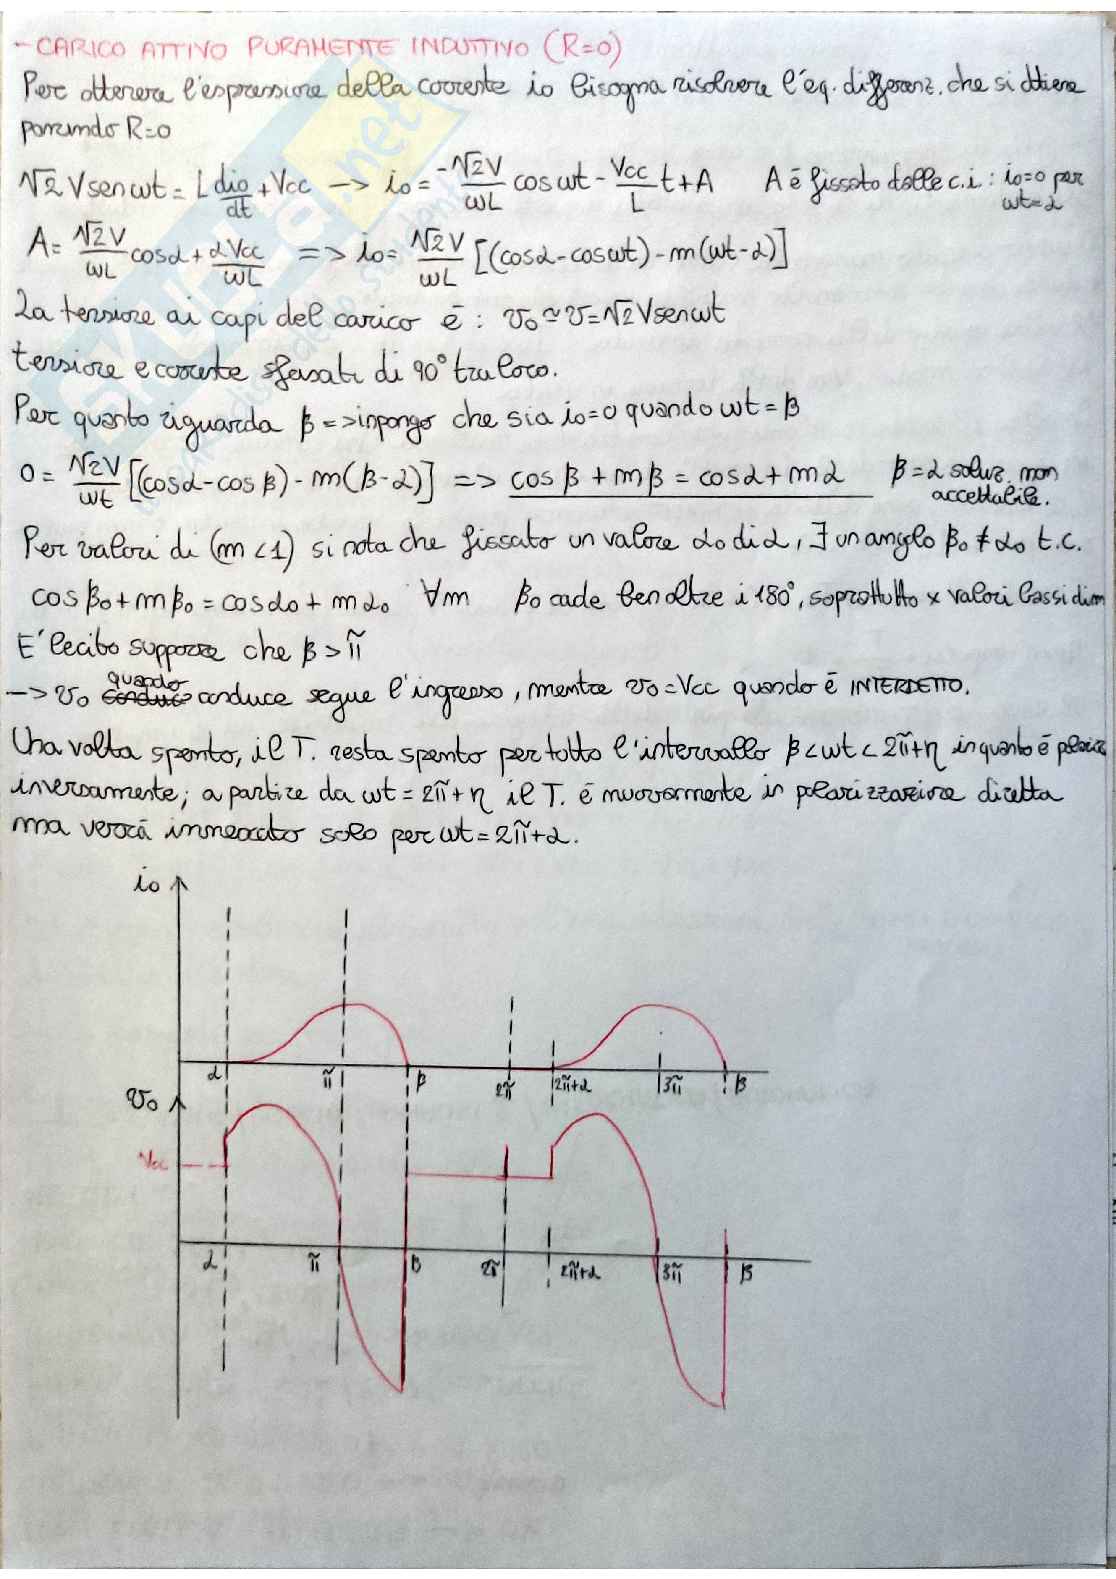 - CARICO ATTIVO PURAMENTE INDUTTIVO (R=0)
Per ottenere l'espressione della corrente io bisogna risolvere l'eq. differenz. che si ottiene
ponendo R=0
√2 V sen ωt = L dio/dt + Vcc —> io = -√2V/ωL cos ωt - Vcc/L t + A    A è fissato dalle c.i : io=0 per ωt=α
A = √2V/ωL cosα + αVcc/ωL => io = √2V/ωL [(cosα - cosωt) - m(ωt-α)]
La tensione ai capi del carico è : vo ≃ v = √2 V sen ωt
tensione e corrente sfasati di 90° tra loro.
Per quanto riguarda β => impongo che sia io=0 quando ωt = β
0 = √2V/ωt [(cosα - cosβ) - m(β-α)] => cosβ + mβ = cosα + mα    β=α soluz. non accettabile.
Per valori di (m<1) si nota che fissato un valore αo di α, ∃ un angolo βo ≠ αo t.c.
cosβo + mβo = cosαo + mαo ∀m    βo cade ben oltre i 180°, soprattutto x valori bassi di m
E' lecito supporre che β > π
—> vo quando conduce segue l'ingresso, mentre vo = Vcc quando è INTERDETTO.
Una volta spento, il T. resta spento per tutto l'intervallo β < ωt < 2π+η in quanto è polariz
inversamente; a partire da ωt = 2π+η il T. è nuovamente in polarizzazione diretta
ma verrà innescato solo per ωt = 2π+α.
io
α π β 2π 2π+α 3π β
vo
Vcc
α π β 2π 2π+α 3π β